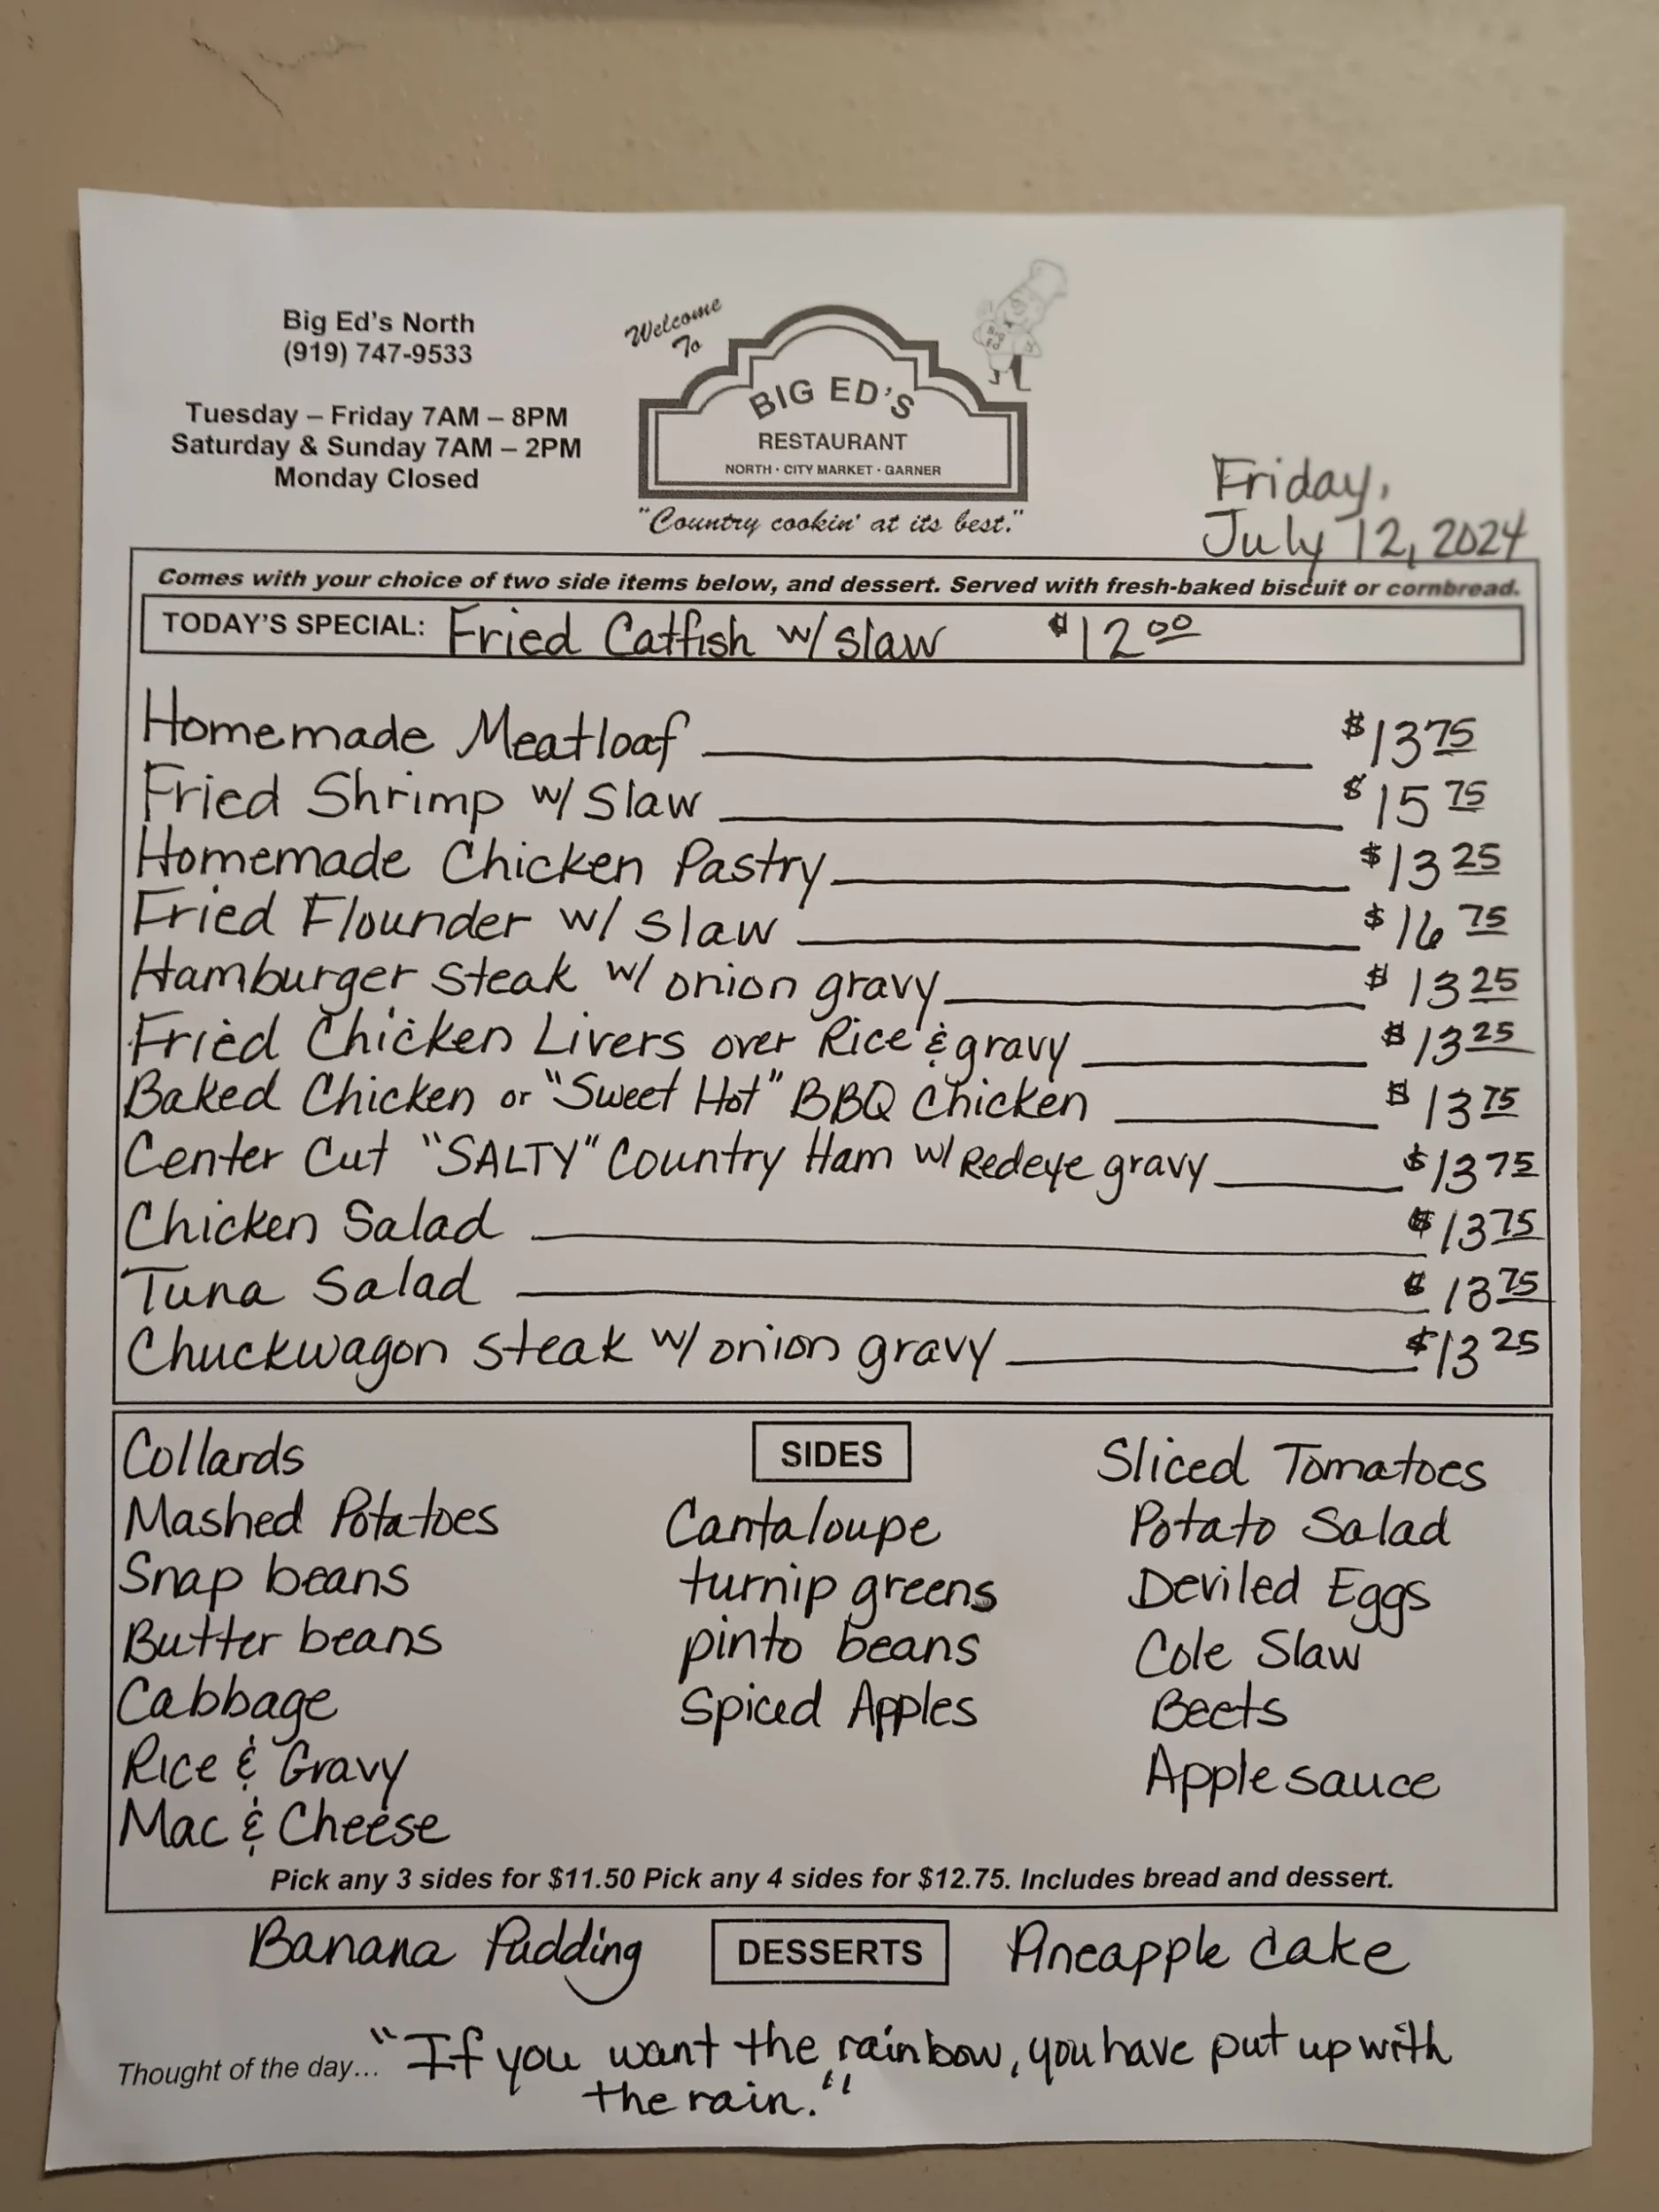 Big Ed's North
(919) 747-9533
Tuesday – Friday 7AM – 8PM
Saturday & Sunday 7AM – 2PM
Monday Closed
Welcome
To
BIG ED'S
RESTAURANT
NORTH · CITY MARKET · GARNER
"Country cookin' at its best."
Big
Ed
Friday,
July 12, 2024
Comes with your choice of two side items below, and dessert. Served with fresh-baked biscuit or cornbread.
TODAY'S SPECIAL: Fried Catfish w/ slaw $12 00
Homemade Meatloaf $13 75
Fried Shrimp w/ Slaw $15 75
Homemade Chicken Pastry $13 25
Fried Flounder w/ slaw $16 75
Hamburger steak w/ onion gravy $13 25
Fried Chicken Livers over Rice & gravy $13 25
Baked Chicken or "Sweet Hot" BBQ Chicken $13 75
Center Cut "SALTY" Country Ham w/ Redeye gravy $13 75
Chicken Salad $13 75
Tuna Salad $13 75
Chuckwagon steak w/ onion gravy $13 25
SIDES
Collards
Mashed Potatoes
Snap beans
Butter beans
Cabbage
Rice & Gravy
Mac & Cheese
Cantaloupe
turnip greens
pinto beans
Spiced Apples
Sliced Tomatoes
Potato Salad
Deviled Eggs
Cole Slaw
Beets
Apple sauce
Pick any 3 sides for $11.50 Pick any 4 sides for $12.75. Includes bread and dessert.
Banana Pudding DESSERTS Pineapple Cake
Thought of the day... "If you want the rainbow, you have put up with
the rain."